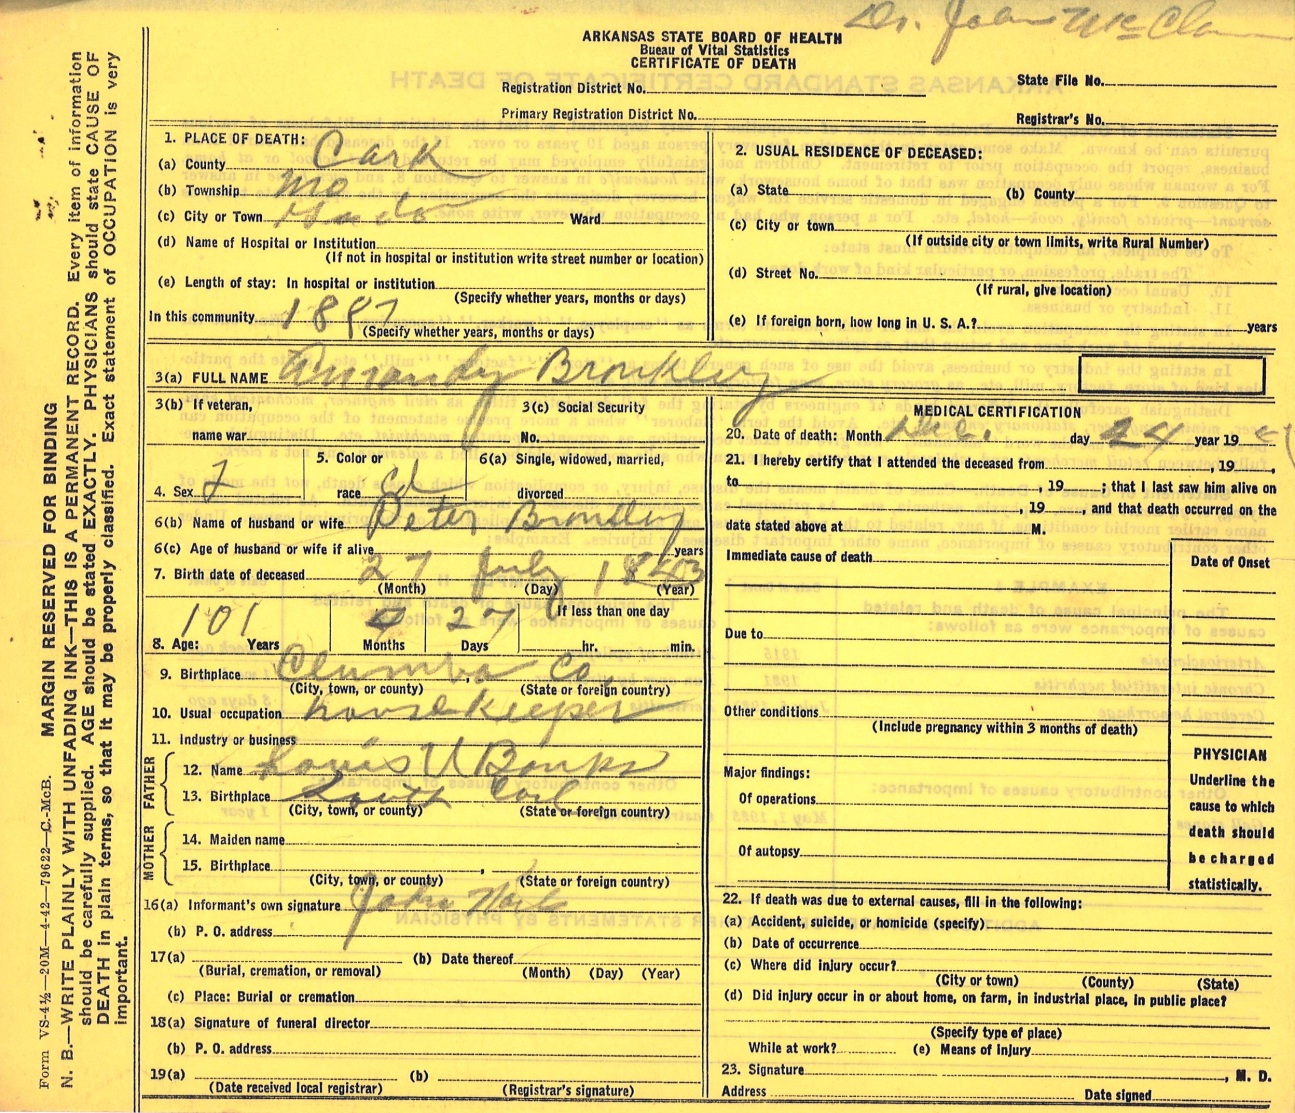 Dr. John McClan
ARKANSAS STATE BOARD OF HEALTH
Bueau of Vital Statistics
CERTIFICATE OF DEATH
Registration District No.
State File No.
Primary Registration District No.
Registrar's No.
MARGIN RESERVED FOR BINDING
N. B.—WRITE PLAINLY WITH UNFADING INK—THIS IS A PERMANENT RECORD. Every item of information
should be carefully supplied. AGE should be stated EXACTLY. PHYSICIANS should state CAUSE OF
DEATH in plain terms, so that it may be properly classified. Exact statement of OCCUPATION is very
important.
Form VS-4½—20M—4-42—79622—C.-McB.
1. PLACE OF DEATH:
(a) County Cark
(b) Township Mo
(c) City or Town Ward
(d) Name of Hospital or Institution
(If not in hospital or institution write street number or location)
(e) Length of stay: In hospital or institution
(Specify whether years, months or days)
In this community 1897
(Specify whether years, months or days)
2. USUAL RESIDENCE OF DECEASED:
(a) State (b) County
(c) City or town
(If outside city or town limits, write Rural Number)
(d) Street No.
(If rural, give location)
(e) If foreign born, how long in U. S. A.? years
3(a) FULL NAME Amandy Bronkley
3(b) If veteran, 3(c) Social Security
name war No.
4. Sex 5. Color or race Cl 6(a) Single, widowed, married,
divorced
6(b) Name of husband or wife Peter Bronkley
6(c) Age of husband or wife if alive years
7. Birth date of deceased 27 July 18
(Month) (Day) (Year)
8. Age: 101 Years Months 27 Days If less than one day
hr. min.
9. Birthplace Clumba Co.
(City, town, or county) (State or foreign country)
10. Usual occupation housekeeper
11. Industry or business
FATHER
12. Name Louis V Banks
13. Birthplace South Carl
(City, town, or county) (State or foreign country)
MOTHER
14. Maiden name
15. Birthplace ,
(City, town, or county) (State or foreign country)
16(a) Informant's own signature
(b) P. O. address
17(a) (b) Date thereof
(Burial, cremation, or removal) (Month) (Day) (Year)
(c) Place: Burial or cremation
18(a) Signature of funeral director
(b) P. O. address
19(a) (b)
(Date received local registrar) (Registrar's signature)
MEDICAL CERTIFICATION
20. Date of death: Month Dec. day 24 year 19
21. I hereby certify that I attended the deceased from , 19 ,
to , 19 ; that I last saw him alive on
, 19 , and that death occurred on the
date stated above at M.
Immediate cause of death Date of Onset
Due to
Other conditions
(Include pregnancy within 3 months of death)
Major findings:
Of operations
Of autopsy
PHYSICIAN
Underline the
cause to which
death should
be charged
statistically.
22. If death was due to external causes, fill in the following:
(a) Accident, suicide, or homicide (specify)
(b) Date of occurrence
(c) Where did injury occur?
(City or town) (County) (State)
(d) Did injury occur in or about home, on farm, in industrial place, in public place?
(Specify type of place)
While at work? (e) Means of injury
23. Signature , M. D.
Address Date signed